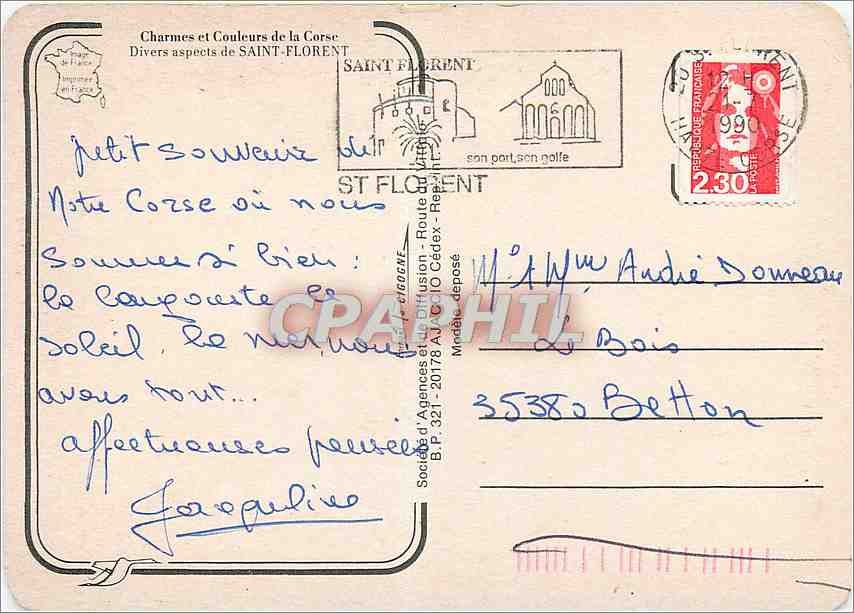 Charmes et Couleurs de la Corse
Divers aspects de SAINT-FLORENT
Image
de France
Imprimée
en France
petit souvenir de
Notre Corse où nous
sommes si bien :
la langouste le
soleil, la mer, nous
avons tout...
affectueuses pensées
Jacqueline
SAINT FLORENT
son port, son golfe
ST FLORENT
1990
CORSE
REPUBLIQUE FRANÇAISE
LA POSTE
2.30
Société d'Agences et de Diffusion - Route du
B.P. 321 - 20178 AJACCIO Cédex -
Modèle déposé
CIGOGNE
CPAPHIL
Mr & Mme André Donneau
Le Bois
35380 Betton